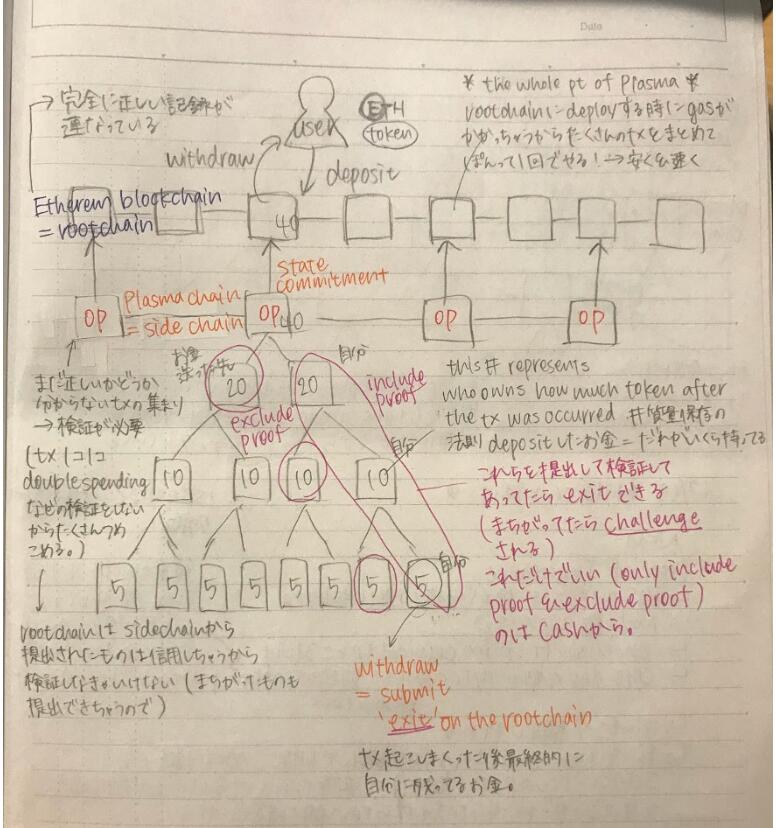 Date
→完全に正しい記録が
連なっている
user
ETH
token
* the whole pt of Plasma *
rootchainにdeployする時にgasが
かかっちゃうからたくさんのtxをまとめて
ぽんって1回でやる!→安く&速く
withdraw
deposit
Ethereum blockchain
= rootchain
40
state
commitment
OP
Plasma chain
= side chain
OP
40
OP
OP
まだ正しいかどうか
分からないtxの集まり
→検証が必要
(tx1コ1コ
doublespending
などの検証をしない
からたくさんつめ
こめる。)
お金
送った先
20
exclude
proof
20
自分
include
proof
this # represents
who owns how much token after
the tx was occurred #質量保存の
法則 depositしたお金=だれがいくら持ってる
10
10
10
10
自分
これらを提出して検証して
あってたらexitできる
(まちがってたらchallenge
される)
これだけでいい (only include
proof & exclude proof)
のはCashから。
5
5
5
5
5
5
5
5
自分
rootchainはsidechainから
提出されたものは信用しちゃうから
検証しなきゃいけない (まちがったものも
提出できちゃうので)
withdraw
= submit
'exit' on the rootchain
tx起こしまくった後最終的に
自分に残ってるお金。